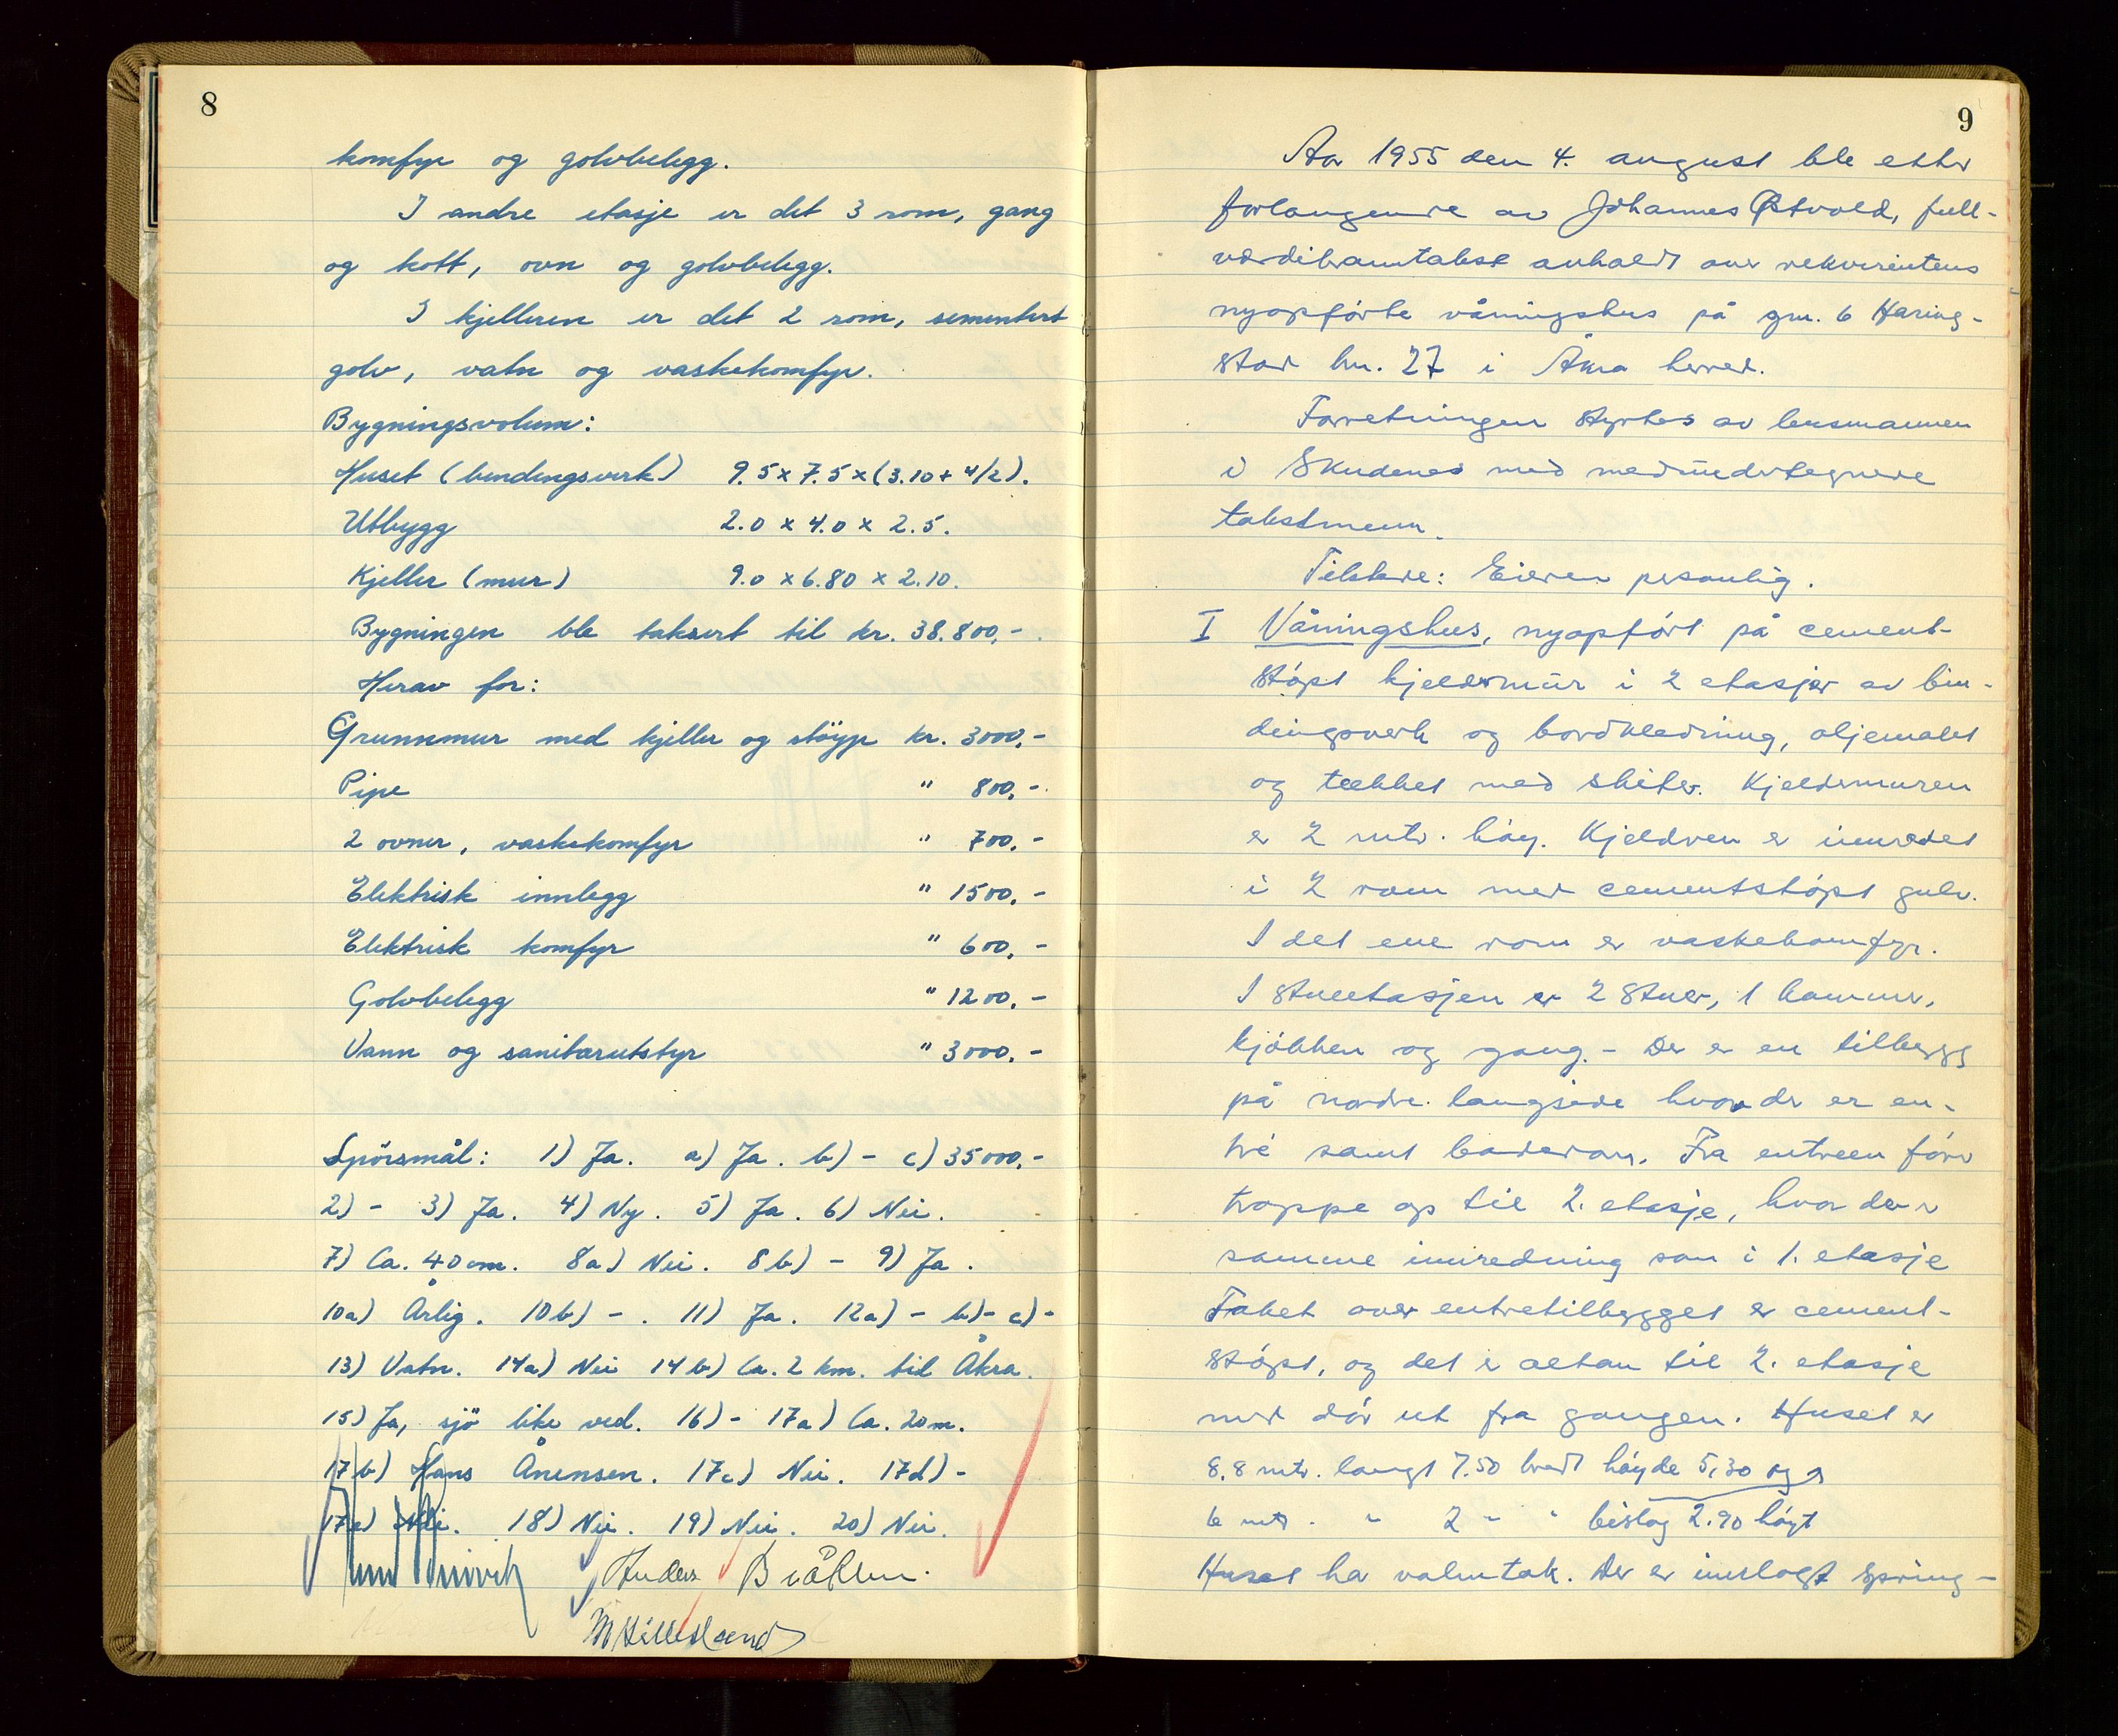 8
komfyr og golvbelegg.
I andre etasje er det 3 rom, gang
og kott, ovn og golvbelegg.
I kjelleren er det 2 rom, sementert
golv, vatn og vaskekomfyr.
Bygningsvolum:
Huset (bindingsverk) 9.5 x 7.5 x (3.10 + 4/2).
Utbygg 2.0 x 4.0 x 2.5.
Kjeller (mur) 9.0 x 6.80 x 2.10.
Bygningen ble taksert til kr. 38.800,-.
Herav for:
Grunnmur med kjeller og støyp kr. 3000,-
Pipe " 800,-
2 ovner, vaskekomfyr " 700,-
Elektrisk innlegg " 1500,-
Elektrisk komfyr " 600,-
Golvbelegg " 1200,-
Vann og sanitærutstyr " 3000,-
Spörsmål: 1) Ja. a) Ja. b) - c) 35000,-
2) - 3) Ja. 4) Ny. 5) Ja. 6) Nei.
7) Ca. 40 cm. 8a) Nei. 8b) - 9) Ja.
10a) Årlig. 10b) -. 11) Ja. 12a) - b)- c)-
13) Vatn. 14a) Nei 14b) Ca. 2 km. til Åkra.
15) Ja, sjö like ved. 16) - 17a) Ca. 20 m.
17b) Hans Ånensen. 17c) Nei. 17d) -
17e) Nei. 18) Nei. 19) Nei. 20) Nei.
Anders
M Hillesland
9
Aar 1955 den 4. august ble etter
forlangende av Johannes Østvold, full-
verdibranntakst avholdt over rekvirentens
nyopførte våningshus på gnr. 6 Haring-
stad bnr. 27 i Åkra herred.
Forretningen styrtes av lensmannen
i Skudenes med medundertegnede
takstmenn.
Tilstede: Eieren personlig.
I Våningshus, nyopført på cement-
støpt kjeldermur i 2 etasjer av bin-
dingsverk og bordkledning, oljemalet
og tækket med skifer. Kjeldermuren
er 2 mtr. høy. Kjelderen er innredet
i 2 rom med cementstøpt gulv.
I det ene rom er vaskekomfyr.
I stueetasjen er 2 stuer, 1 kammer,
kjøkken og gang. - Der er en tilbygg
på nordre langside hvor der er en-
tré samt baderom. Fra entreen fører
trappe op til 2. etasje, hvor der er
samme innredning som i 1. etasje
Taket over entretilbygget er cement-
støpt, og det er altan til 2. etasje
med dør ut fra gangen. Huset er
8.8 mtr. langt 7.50 bredt høyde 5,30 og
6 mtr. " 2 " " bislag 2.90 høyt
Huset har valmtak. Der er innlagt spring-